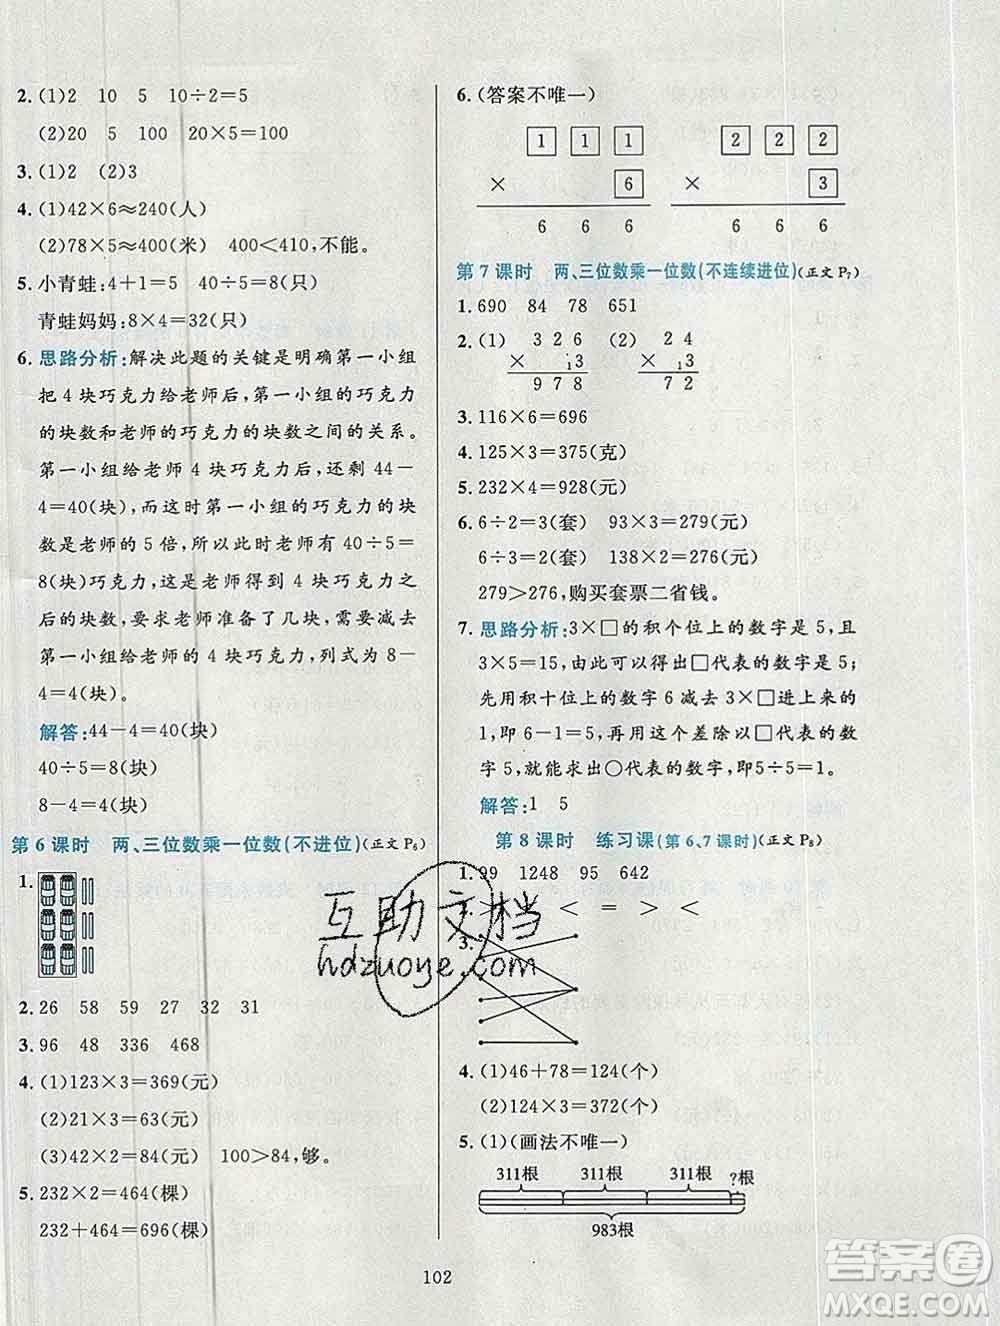 2. (1)2 10 5 10÷2=5
(2)20 5 100 20×5=100
3. (1)2 (2)3
4. (1)42×6≈240(人)
(2)78×5≈400(米) 400<410,不能。
5. 小青蛙:4+1=5(只)
青蛙妈妈:8×4=32(只)
6. 思路分析:解决此题的关键是明确第一小组
把4块巧克力给老师后,第一小组的巧克力
的块数和老师的巧克力的块数之间的关系。
第一小组给老师4块巧克力后,还剩44-
4=40(块),而这时第一小组的巧克力的块
数是老师的5倍,所以此时老师有40÷5=
8(块)巧克力,这是老师得到4块巧克力之
后的块数,要求老师准备了几块,需要减去
第一小组给老师的4块巧克力,列式为8-
4=4(块)。
解答:44-4=40(块)
40÷5=8(块)
8-4=4(块)
第6课时 两、三位数乘一位数(不进位)(正文P6)
1.
2. 26 58 59 27 32 31
3. 96 48 336 468
4. (1)123×3=369(元)
(2)21×3=63(元)
(3)42×2=84(元) 100>84,够。
5. 232×2=464(棵)
232+464=696(棵)
6. (答案不唯一)
1 1 1 2 2 2
× 6 × 3
6 6 6 6 6 6
第7课时 两、三位数乘一位数(不连续进位)(正文P7)
1. 690 84 78 651
2. (1) 3 2 6 (2) 2 4
× 1 3 × 1 3
9 7 8 7 2
3. 116×6=696
4. 125×3=375(克)
5. 232×4=928(元)
6. 6÷2=3(套) 93×3=279(元)
6÷3=2(套) 138×2=276(元)
279>276,购买套票二省钱。
7. 思路分析:3×□的积个位上的数字是5,且
3×5=15,由此可以得出□代表的数字是5;
先用积十位上的数字6减去3×□进上来的
1,即6-1=5,再用这个差除以□代表的数
字5,就能求出○代表的数字,即5÷5=1。
解答:1 5
第8课时 练习课(第6、7课时)(正文P8)
1. 99 1248 95 642
2. > < = > <
3.
4. (1)46+78=124(个)
(2)124×3=372(个)
5. (1)(画法不唯一)
311根 311根 311根 ?根
983根
102
互助文档
hdzuoye.com
答案圈
MXQE.COM